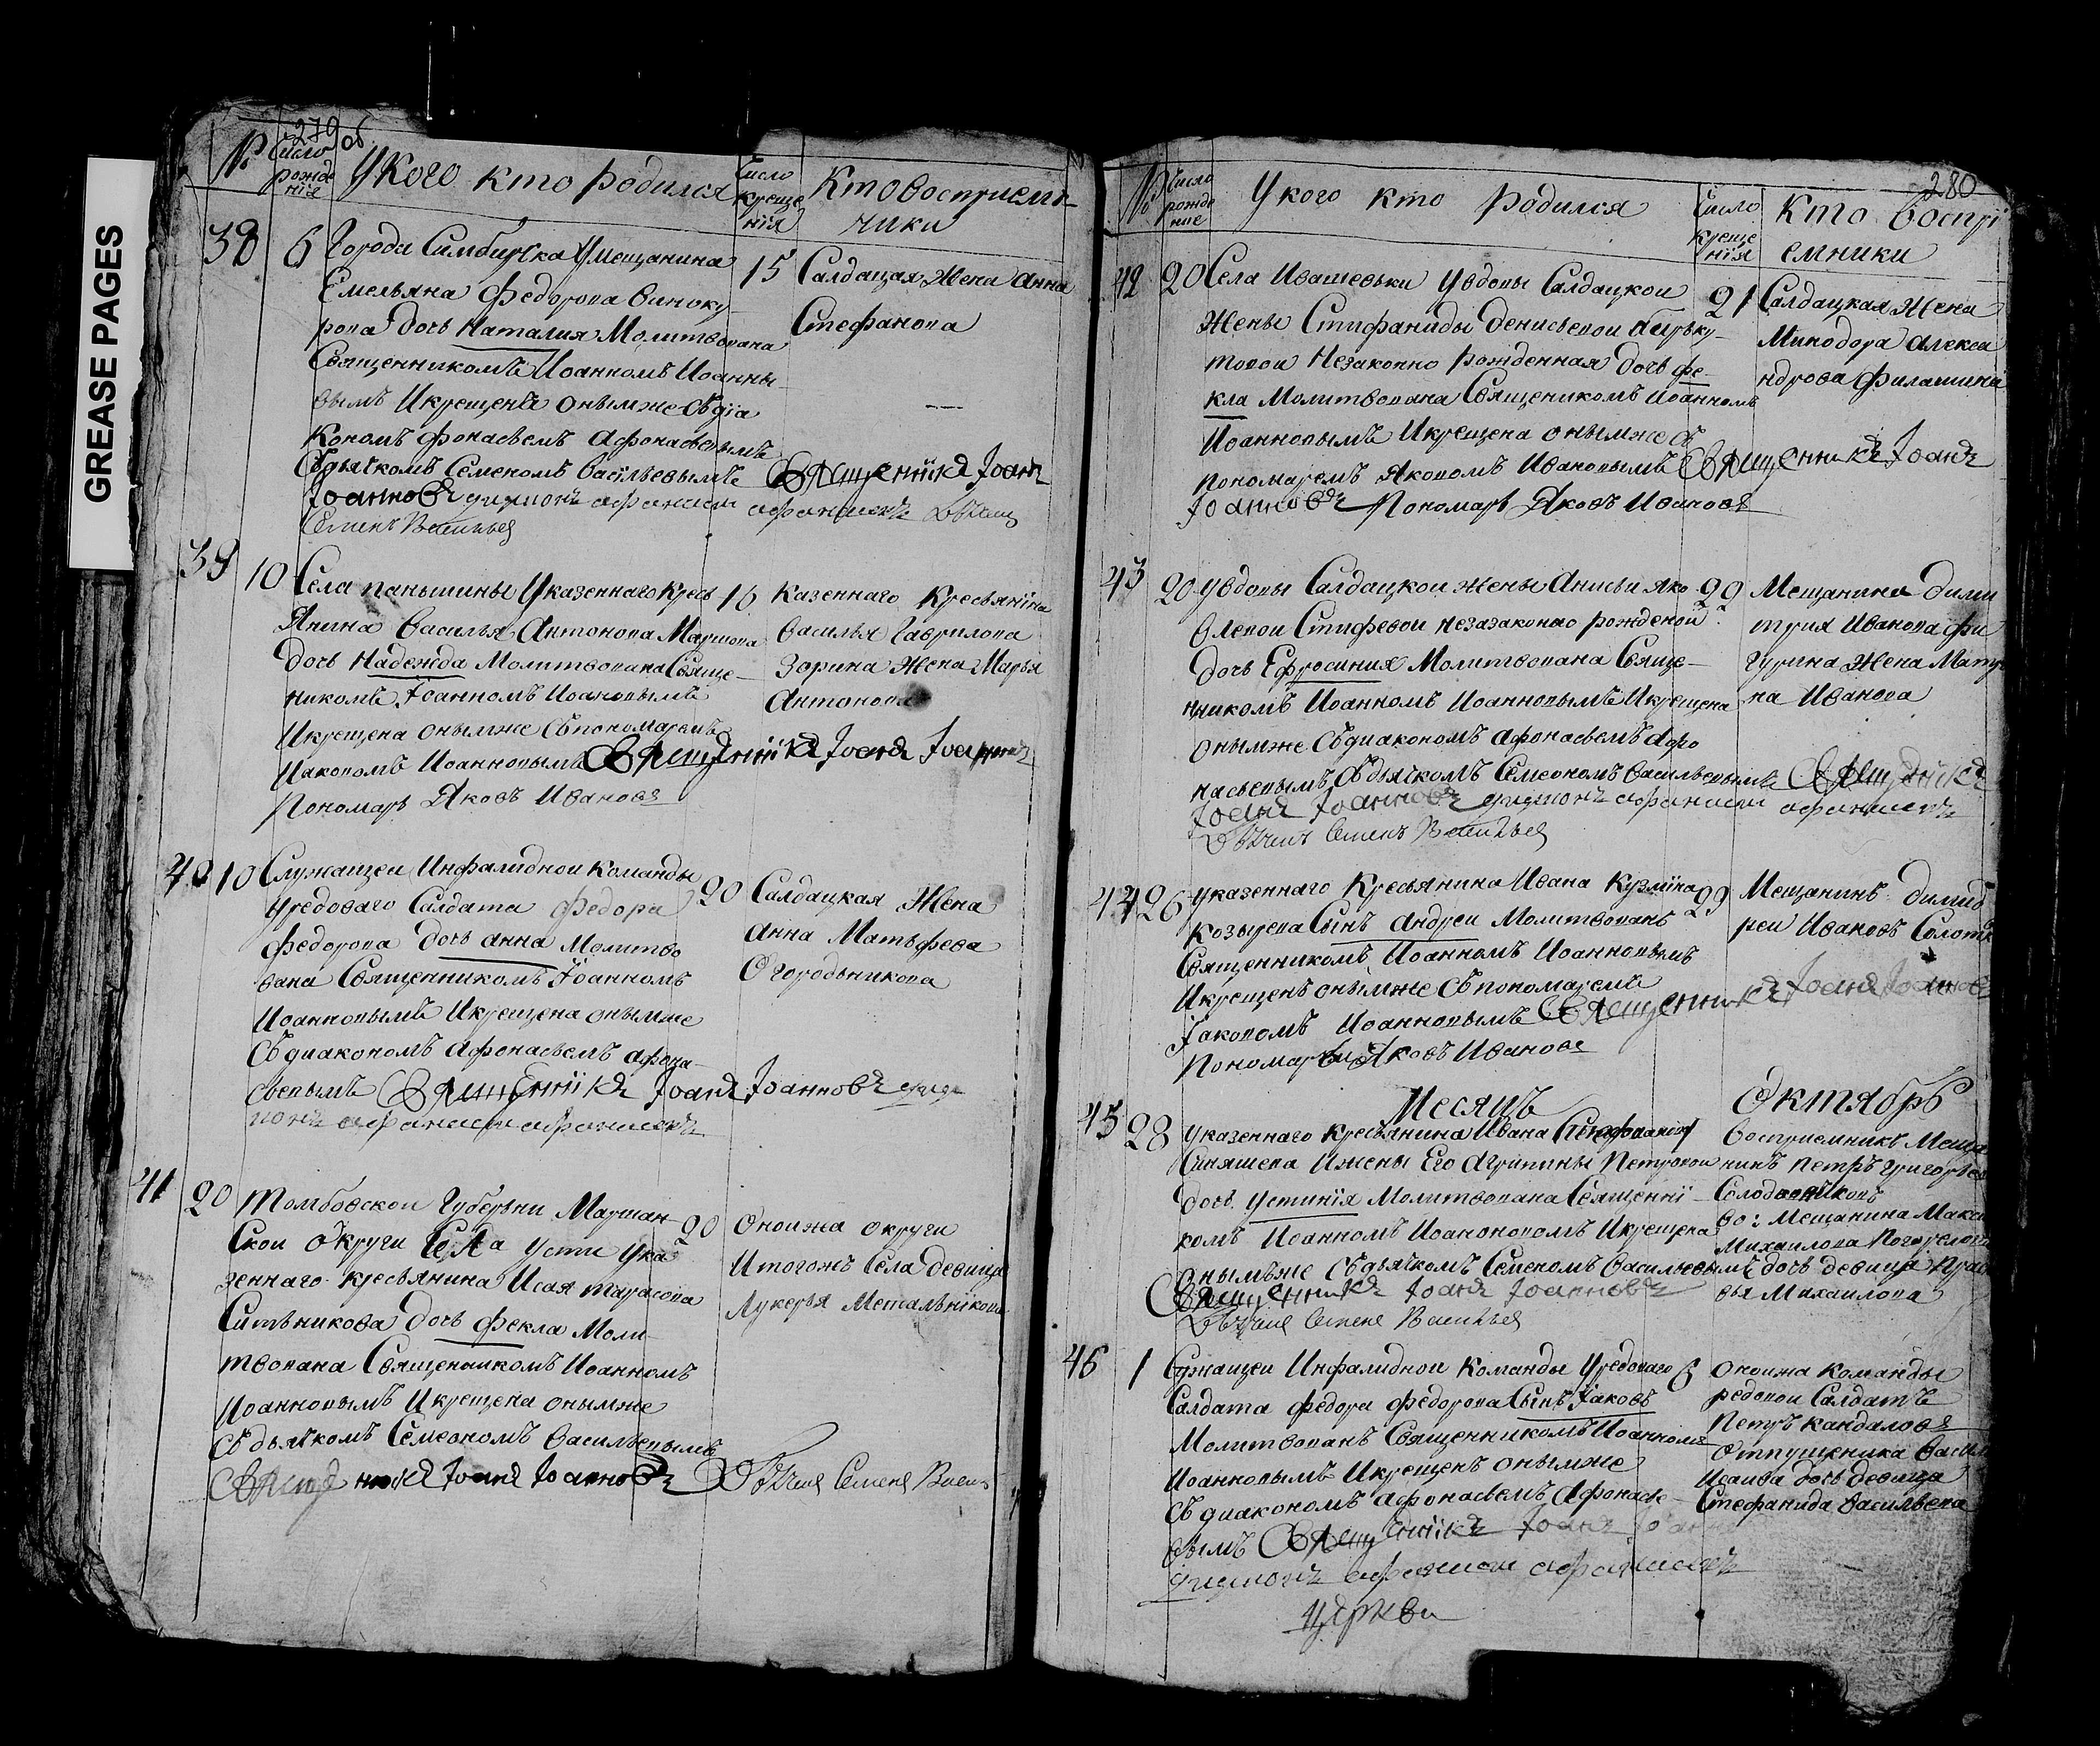 GREASE PAGES
279 об
№
Число рождения
У кого кто родился
Число крещения
Кто восприемники
38
6
15
Города Симбирска У мещанина
Емельяна Федорова Виноку-
рова дочь Наталия Молитвована
Священникомъ Иоанномъ Иоанны-
вымъ И крещена онымже Съ дїа
кономъ Афонасьевымъ
Съ дьячкомъ Семеномъ Васильевымъ Священникъ Иоанъ
Иоанновъ
Семенъ Васильев
Салдацкая Жена Анна
Стефанова
39
10
16
Села паньшины У казеннаго Кресь
янина Василья Антонова
дочь Надежда Молитвована Свяще-
никомъ Іоанномъ Иоановымъ
И крещена онымже Съ пономаремъ
Иаковомъ Иоанновымъ Священникъ Иоанъ
Пономарь Яковъ Ивановъ
Казеннаго Кресьянина
Василья Гаврилова
Зорина Жена Марья
Антонова
40
10
20
Служащей Инфалидной Команды
У редоваго Салдата Федора
Федорова дочь Анна Молитво
вана Священникомъ Іоанномъ
Иоанновымъ И крещена онымже
Съ диакономъ Афонасьемъ Афона-
сьевымъ Священникъ Иоанъ Иоанновъ
Салдацкая Жена
Анна Матьфева
Огородьникова
41
20
20
Томбовской Губерьни Маршан-
Ской Округи Села Усти У ка
зеннаго кресьянина Исая Тарасова
Ситьникова дочь Фекла Моли-
твована Священникомъ Иоанномъ
Иоанновымъ И крещена онымже
Съ дьячкомъ Семеономъ Васильевымъ
Иоанъ Иоанновъ Дьячекъ Семенъ
Оноижа округи
И тогожъ Села девица
Лукерья Метальникова
280
№
Число рождение
У кого кто родился
Число крещения
Кто восприемники
42
20
21
Села Ивашевьки У вдовы Салдацкой
Жены Стифаниды Денисьевой
Незаконно рожденная дочь Фе-
кла Молитвована Священикомъ Иоанномъ
Иоанновымъ И крещена онымже Съ
пономаремъ Яковомъ Ивановымъ Священникъ Иоанъ
Иоанновъ Пономарь Яковъ Ивановъ
Салдацкая Жена
Минодора Алекса
ндрова Филатина
43
20
22
У вдовы Салдацкой жены Анисьи Яко
влевой Стифевой незазаконно рожденой
дочь Ефросиния Молитвована Свяще-
нникомъ Иоанномъ Иоанновымъ И крещена
онымже Съ диакономъ Афонасьемъ Афо
насьевымъ Съ дьячкомъ Семеономъ Васильевымъ Священникъ
Иоанъ Иоанновъ
Дьячекъ Семенъ Васильев
Мещанина Дими
трия Иванова
Жена Матре
на Иванова
44
26
29
У казеннаго Кресьянина Ивана Кузмина
Козырева Сынъ Андреи Молитвованъ
Священникомъ Иоанномъ Иоанновымъ
И крещенъ онымже Съ пономаремъ
Іаковомъ Иоанновымъ Священникъ Иоанъ Иоанновъ
Пономарь Яковъ Ивановъ
Мещанинъ
Ивановъ
Месяцъ Октябрь
45
28
У казеннаго кресьянина Ивана
И жены Его Агрипины Петровой
дочь Устиния Молитвована Священни-
комъ Иоанномъ И крещена
онымъже Съ дьячкомъ Семеномъ Васильевымъ
Священникъ Иоанъ Иоанновъ
Дьячекъ Семенъ Васильев
Восприемникъ Меща
нинъ Петръ Григорьев
Мещанина Макси
Михайлова
дочь девица
Михайлова
46
1
Служащей Инфалидной Команды У редоваго
Салдата Федора Федорова Сынъ Іаковъ
Молитвованъ Священникомъ Иоанномъ
Иоанновымъ И крещенъ онымже
Съ диакономъ Афонасьемъ Афонасье-
вымъ Священникъ Иоанъ
Оноижа Команды
редовои Салдатъ
Петръ Кандаловъ
Отпущеника Васил
дочь девица
Стефанида Васильева
церкви